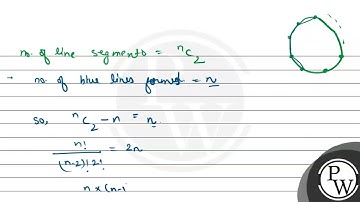 no. of line segments = ⁿC₂
no. of blue lines formed = n
so, ⁿC₂ - n = n
n! / (n-2)! 2! = 2n
n × (n-1
PW
PW